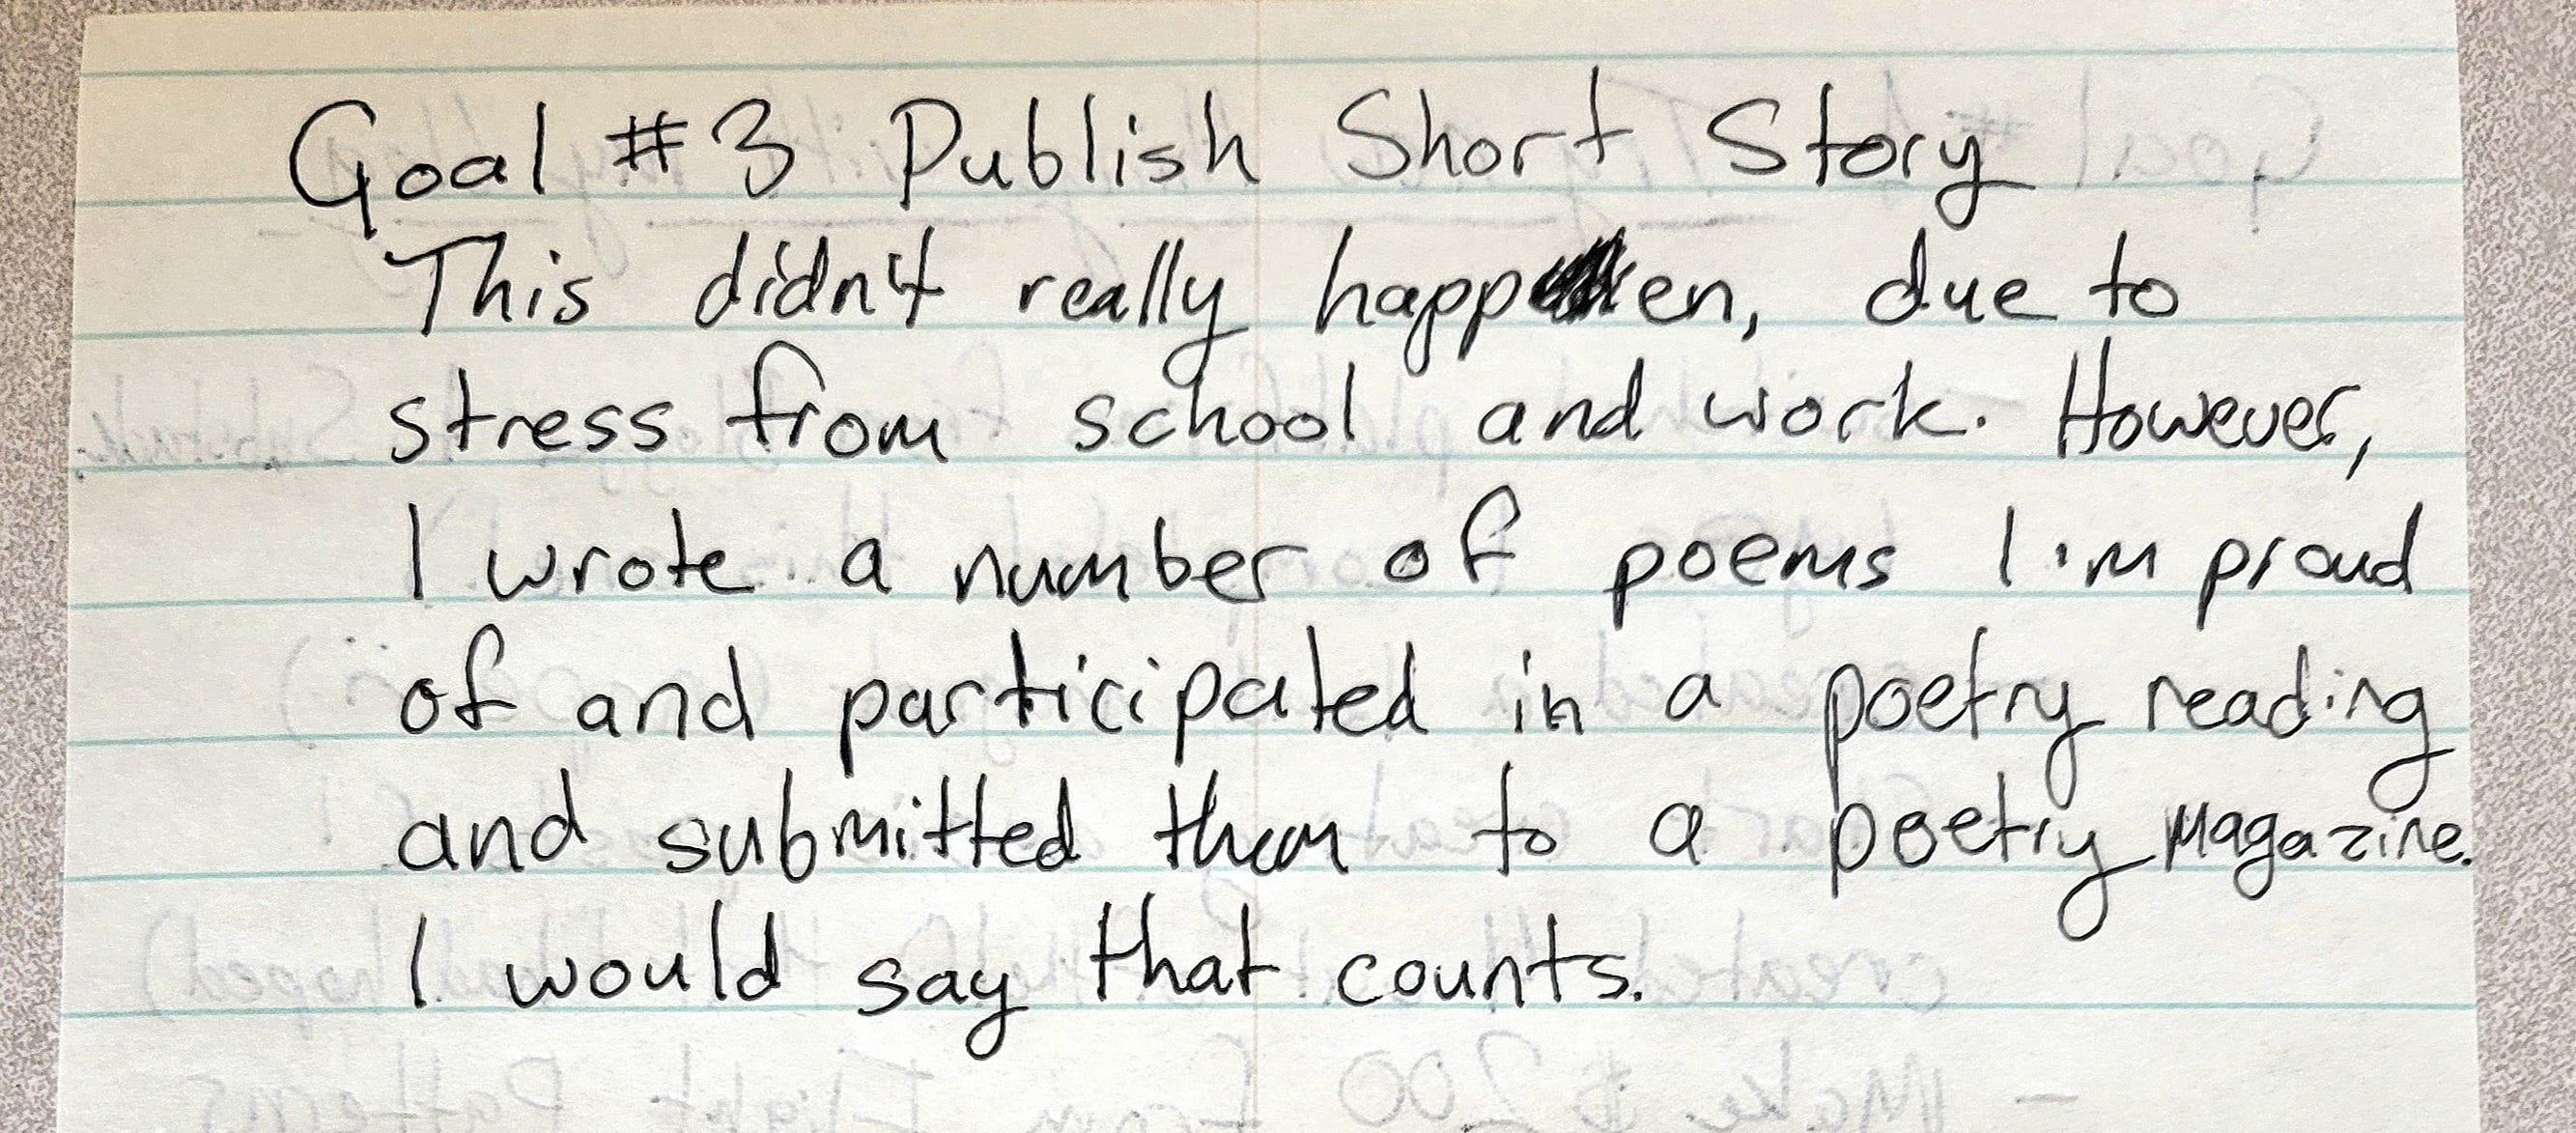 Goal #3 Publish Short Story
This didn't really happen, due to
stress from school and work. However,
I wrote a number of poems I'm proud
of and participated in a poetry reading
and submitted them to a poetry Magazine.
I would say that counts.